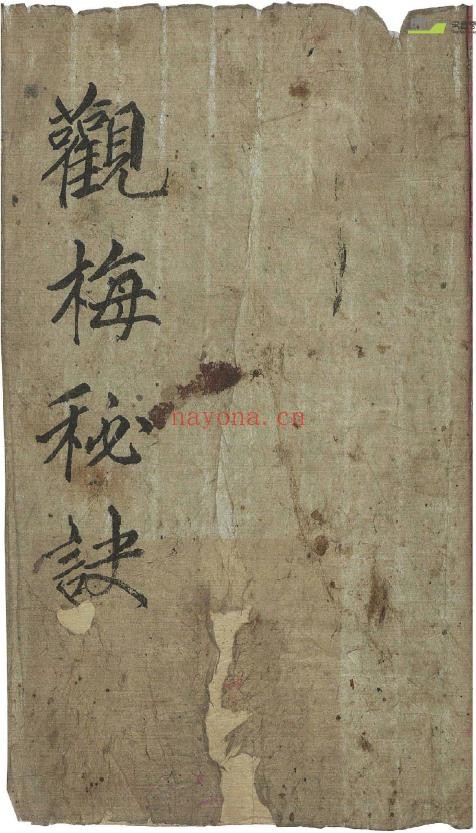 觀梅秘訣
nayona.cn